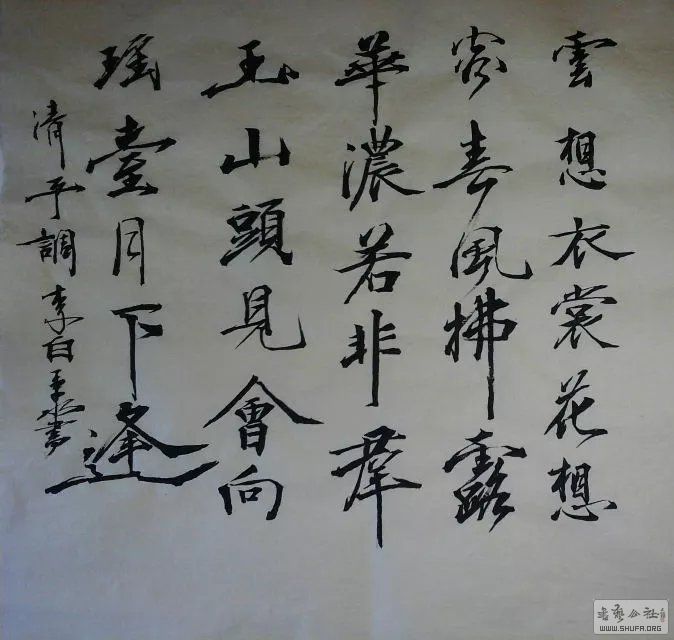 雲想衣裳花想
容春風拂露
華濃若非羣
玉山頭見會向
瑤臺月下逢
清平調李白
書法公社
WWW.SHUFA.ORG